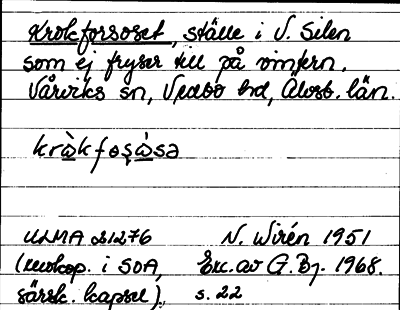 Krokforsoset, ställe i V. Silen
som ej fryser till på vintern.
Vårviks sn, Vedbo hd, Älvsb. län.
kròkfoṣòsə
ULMA 21276 N. Wirén 1951
(renskop. i SOA, Exc. av G. Bj. 1968.
särsk. kapsel). s. 22